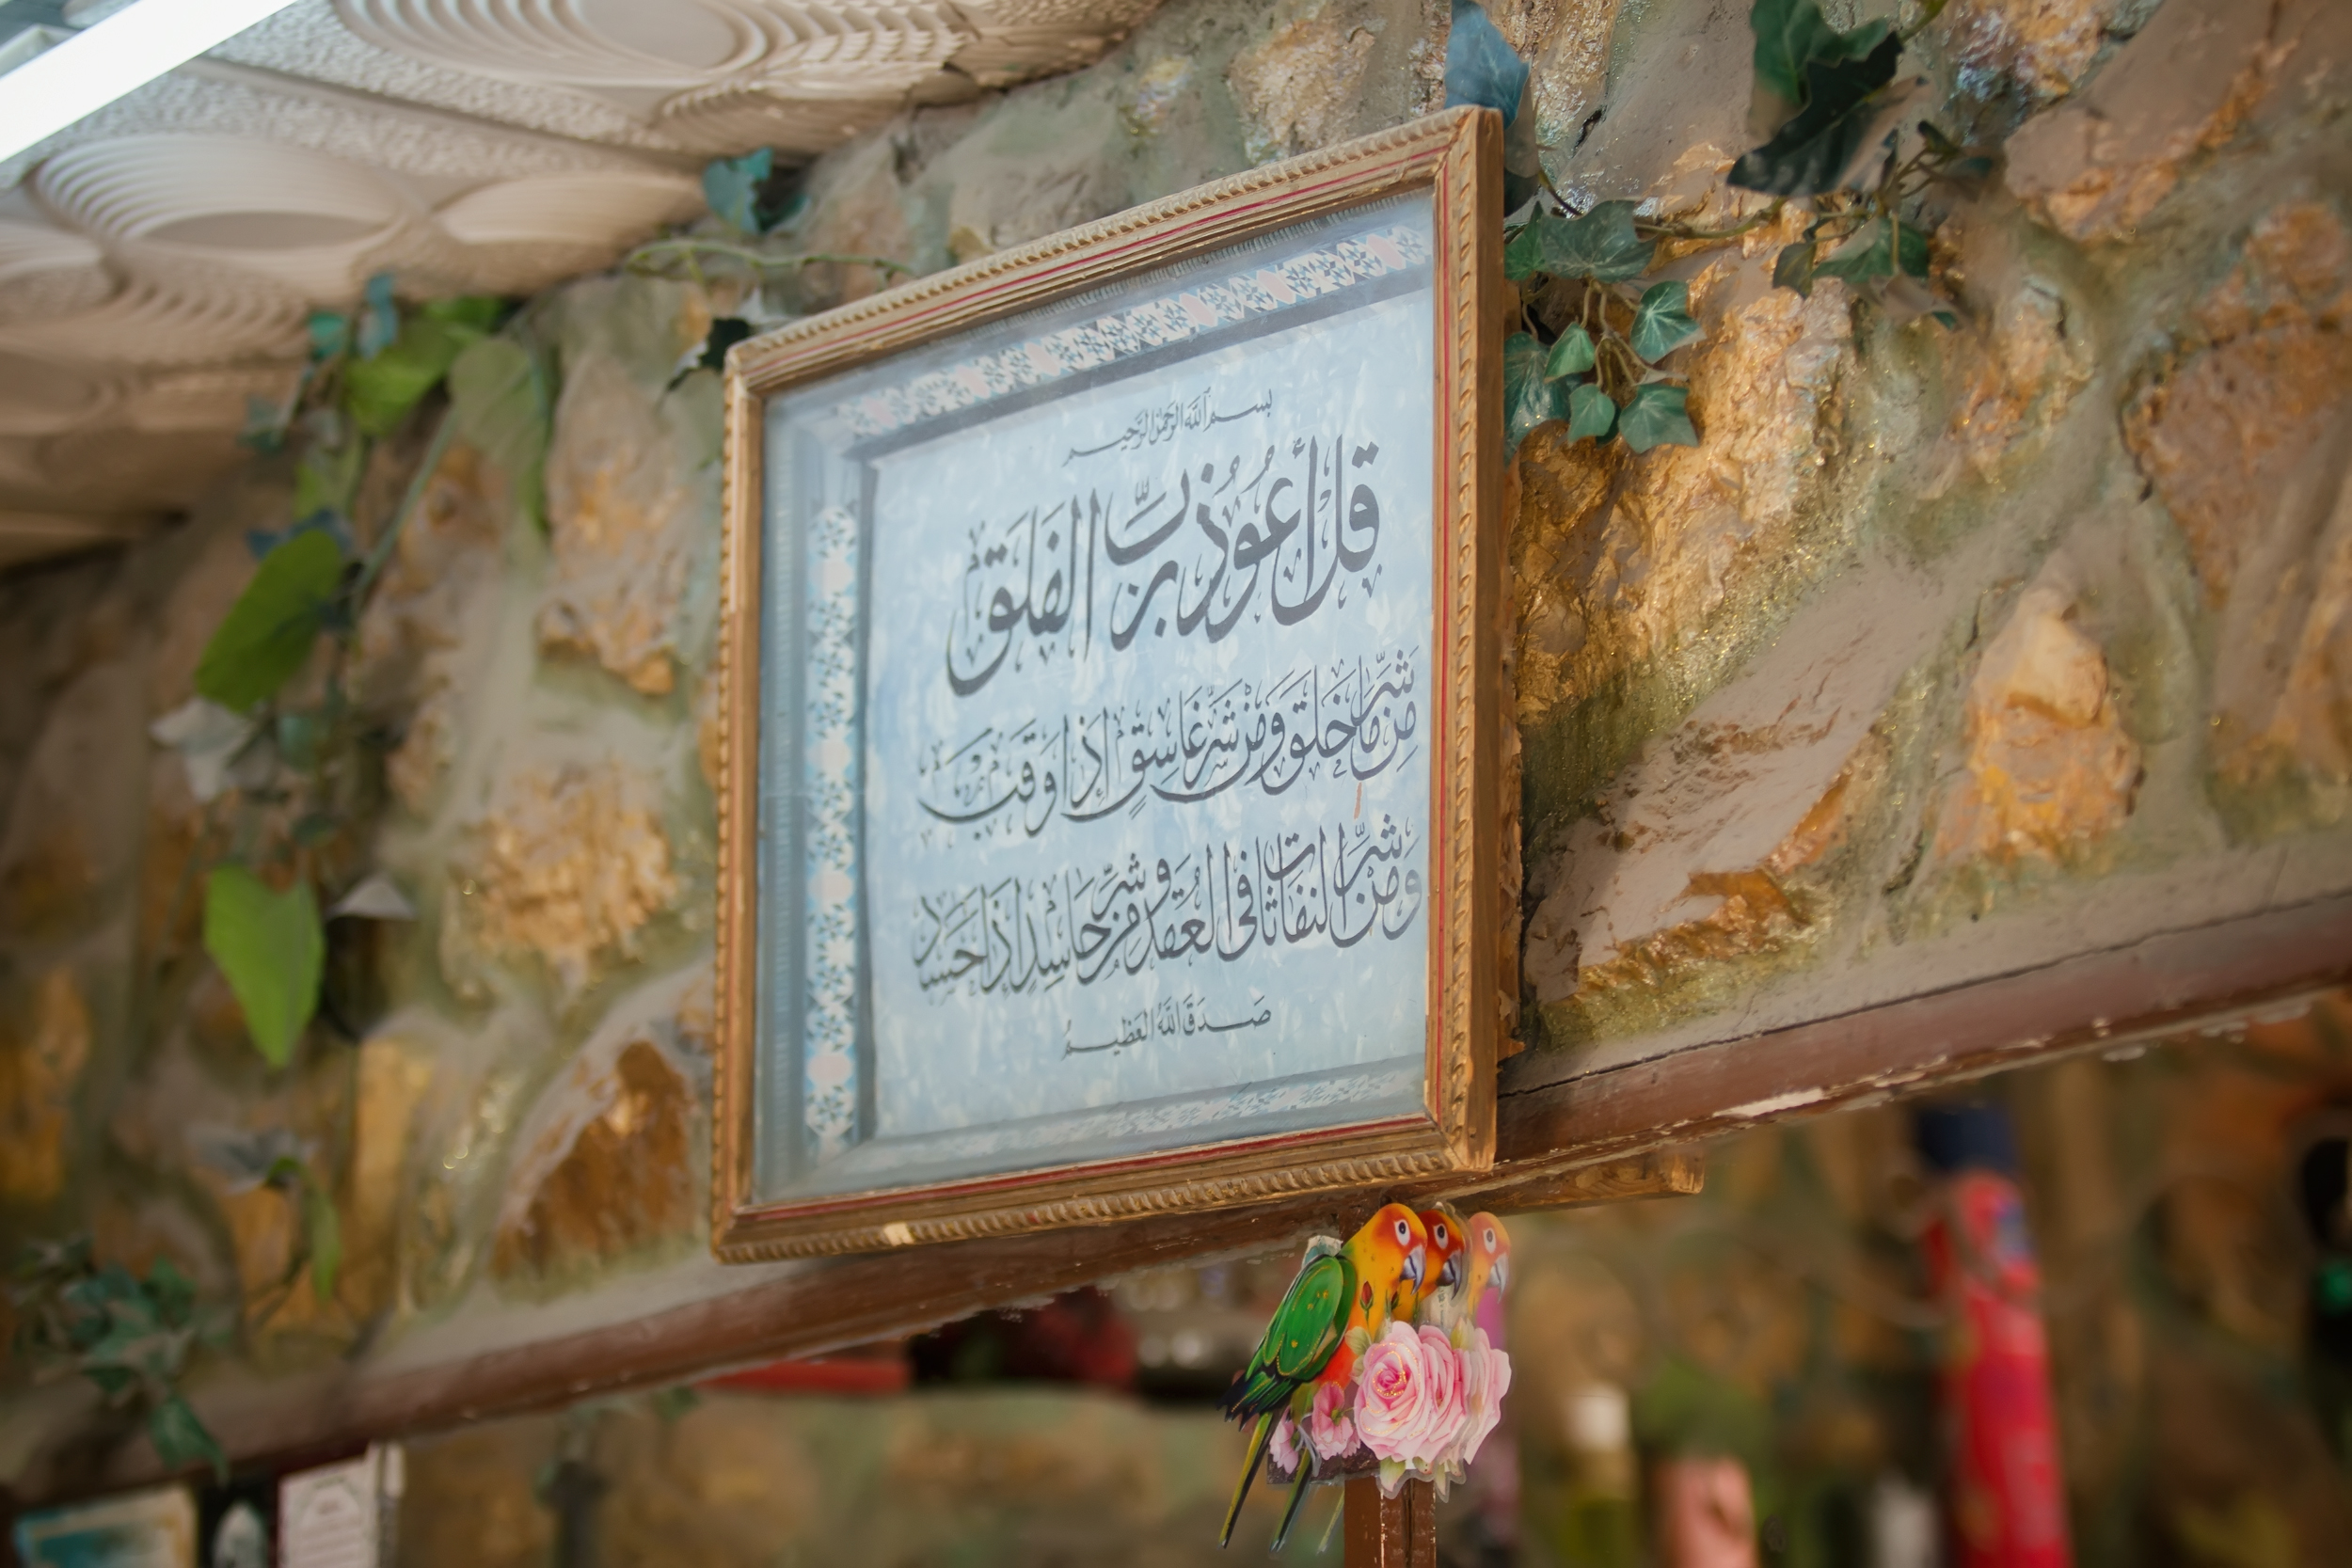 بسم الله الرحمن الرحيم
قل أعوذ برب الفلق
من شر ما خلق ومن شر غاسق اذا وقب
ومن شر النفاثات في العقد ومن شر حاسد اذا حسد
صدق الله العظيم